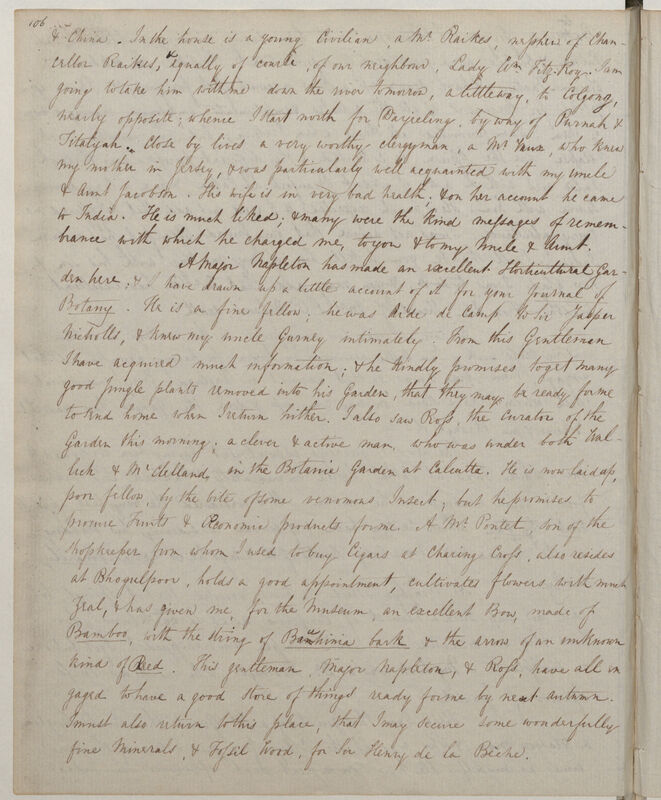 106
& China. In the house is a young Civilian, a Mr Raikes, nephew of Chan-
cellor Raikes, & equally of course, of our neighbour, Lady Em Fitz-Roy. I am
going to take him with me down the river tomorrow, a little way, to Colgong,
nearly opposite; whence I start north for Darjeeling, by way of Purnah &
Titalyah. Close by lives a very worthy clergyman, a Mr Vaux, who knew
my mother in Jersey, & was particularly well acquainted with my uncle
& Aunt Jacobson. His wife is in very bad health; & on her account he came
to India. He is much liked; & many were the kind messages of remem-
brance with which he charged me, to you & to my Uncle & Aunt.
A Major Napleton has made an excellent Horticultural Gar-
den here; & I have drawn up a little account of it for your Journal of
Botany. He is a fine fellow; he was Aide de Camp to Sir Jasper
Nicholls, & knew my uncle Gurney intimately. From this Gentleman
I have acquired much information; & he kindly promises to get many
good jungle plants removed into his Garden, that they may be ready for me
to send home when I return hither. I also saw Ross, the Curator of the
Garden this morning; a clever & active man, who was under both Wal-
lich & McClelland, in the Botanic Garden at Calcutta. He is now laid up,
poor fellow, by the bite of some venomous Insect; but he promises to
procure Fruits & Œconomic products for me. A Mr Pontet, son of the
shopkeeper from whom I used to buy Cigars at Charing Cross, also resides
at Bhogulpoor, holds a good appointment, cultivates flowers with much
Zeal, & has given me, for the Museum, an excellent Bow, made of
Bamboo, with the string of Bauhinia bark & the arrow of an unknown
kind of Reed. This gentleman, Major Napleton, & Ross, have all en
gaged to have a good store of things ready for me by next autumn.
I must also return to this place, that I may secure some wonderfully
fine Minerals, & Fossil Wood, for Sir Henry de la Bèche.